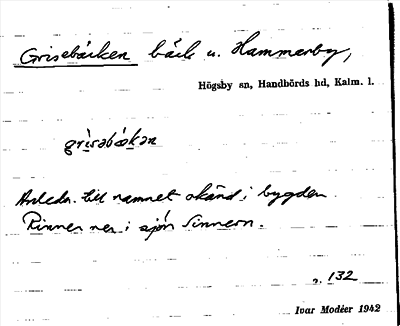 Grisebäcken bäck u. Hammarby,
Högsby sn, Handbörds hd, Kalm. l.
grìsəbäkən
Anledn. till namnet okänd i bygden.
Rinner ner i sjön Sinnern.
s. 132
Ivar Modéer 1942